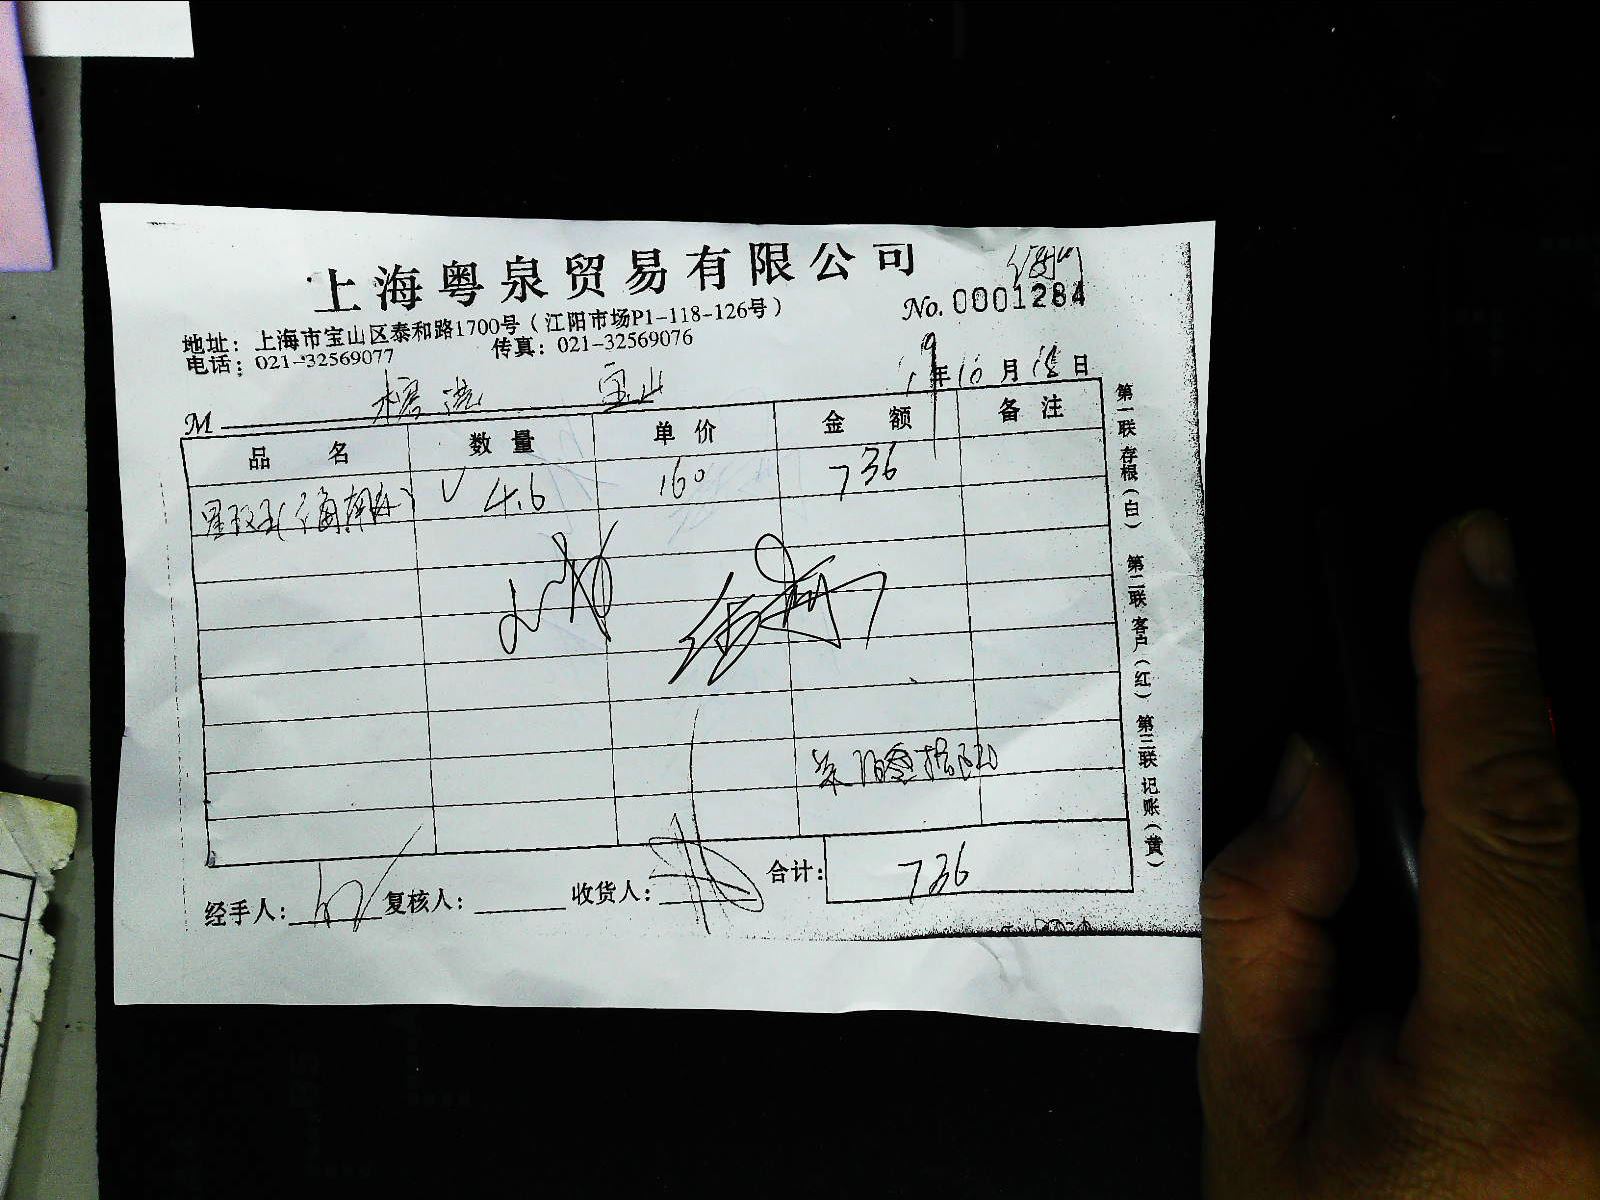 上海粤泉贸易有限公司
No. 0001284
地址：上海市宝山区泰和路1700号（江阳市场P1-118-126号）
电话：021-32569077 传真：021-32569076
19年10月18日
M 宝山
品名 数量 单价 金额 备注
4.6 160 736
合计：736
经手人： 复核人： 收货人：
第一联 存根（白） 第二联 客户（红） 第三联 记账（黄）